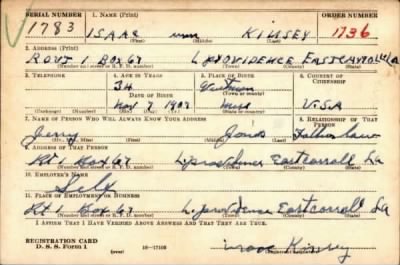 SERIAL NUMBER
1783
1. NAME (Print)
ISAAC KINSEY
(First) (Middle) (Last)
ORDER NUMBER
1736
2. ADDRESS (Print)
ROUT 1 BOX 67 L. PROVIDENCE EAST CARROLL La
(Number and street or R. F. D. number) (Town) (County) (State)
3. TELEPHONE
4. AGE IN YEARS
34
DATE OF BIRTH
Nov 7 1907
(Mo.) (Day) (Yr.)
5. PLACE OF BIRTH
(Town or county)
Miss
(State or country)
6. COUNTRY OF CITIZENSHIP
U.S.A
7. NAME OF PERSON WHO WILL ALWAYS KNOW YOUR ADDRESS
Jerry
(Mr., Mrs., Miss) (First) (Middle) (Last)
8. RELATIONSHIP OF THAT PERSON
Father
9. ADDRESS OF THAT PERSON
Rt 1 Box 67 L. Providence East Carroll La
(Number and street or R. F. D. number) (Town) (County) (State)
10. EMPLOYER'S NAME
Self
11. PLACE OF EMPLOYMENT OR BUSINESS
Rt 1 Box 67 L. Providence East Carroll La
(Number and street or R. F. D. number) (Town) (County) (State)
I AFFIRM THAT I HAVE VERIFIED ABOVE ANSWERS AND THAT THEY ARE TRUE.
REGISTRATION CARD
D. S. S. Form 1
(over)
16—17105
Isaac Kinsey